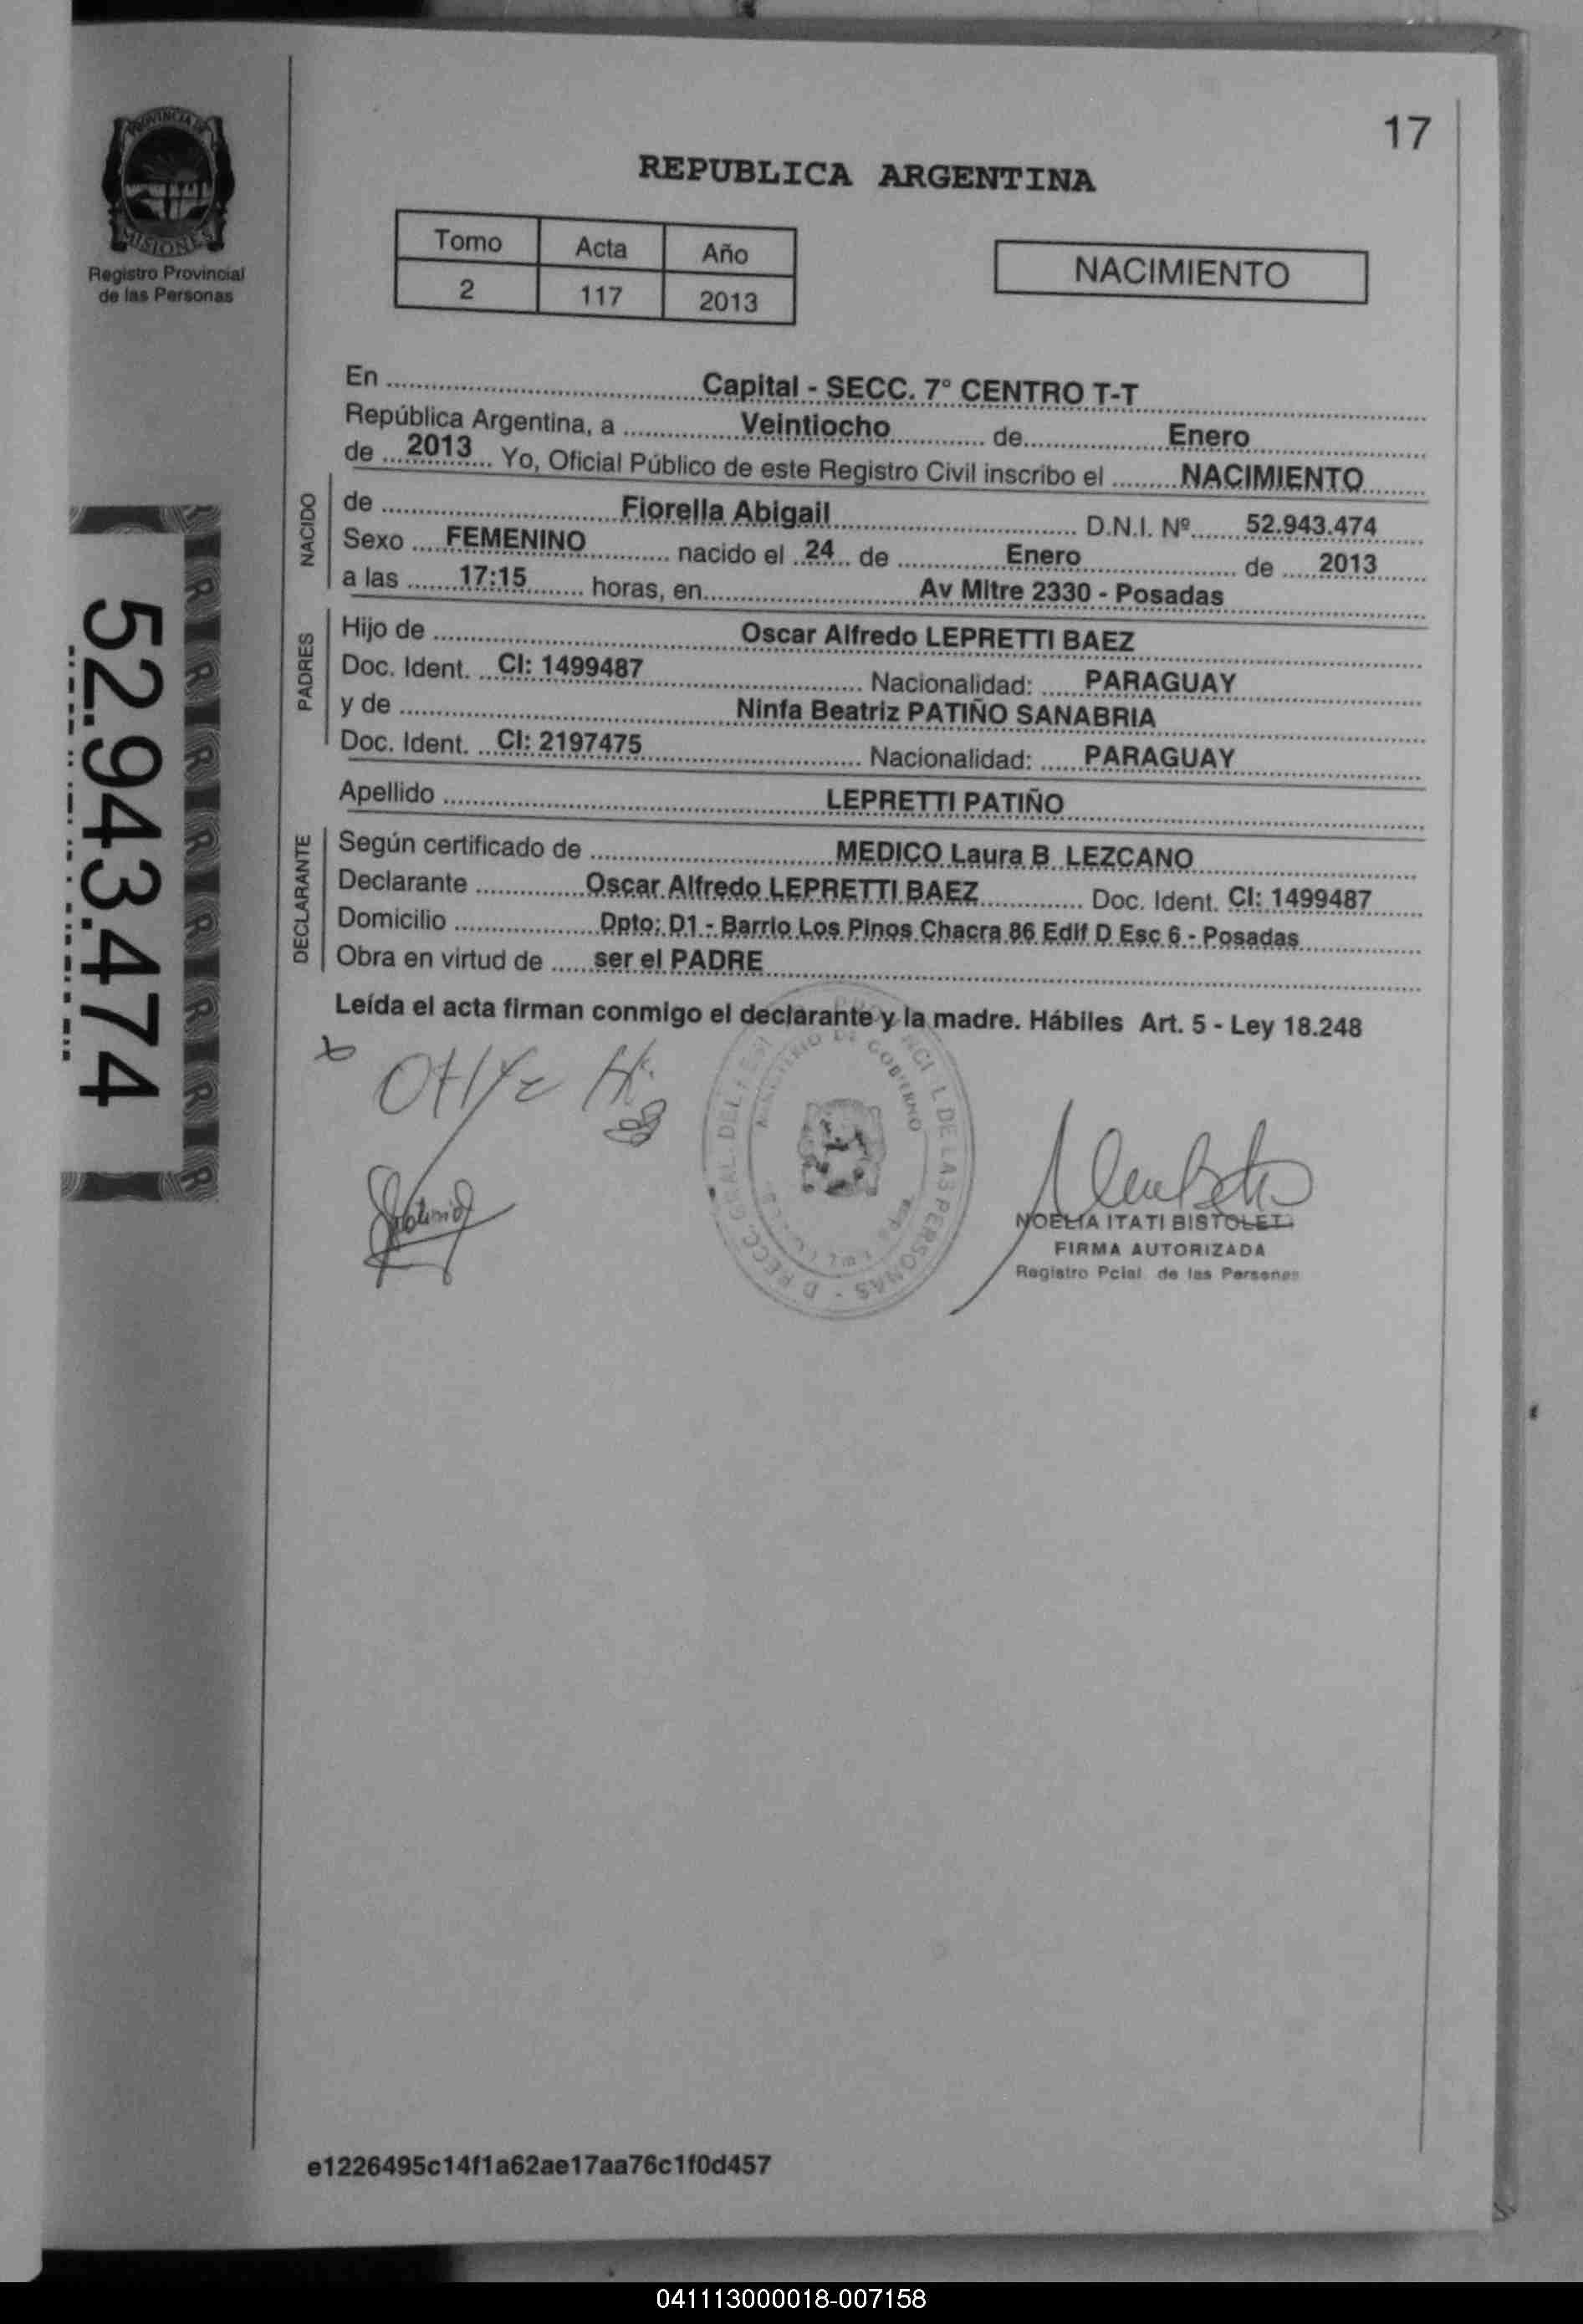 17
REPUBLICA ARGENTINA
PROVINCIA DE
MISIONES
Registro Provincial
de las Personas
Tomo Acta Año
2 117 2013
NACIMIENTO
En Capital - SECC. 7° CENTRO T-T
República Argentina, a Veintiocho de Enero
de 2013 Yo, Oficial Público de este Registro Civil inscribo el NACIMIENTO
NACIDO
de Fiorella Abigail D.N.I. Nº 52.943.474
Sexo FEMENINO nacido el 24 de Enero de 2013
a las 17:15 horas, en Av Mitre 2330 - Posadas
PADRES
Hijo de Oscar Alfredo LEPRETTI BAEZ
Doc. Ident. CI: 1499487 Nacionalidad: PARAGUAY
y de Ninfa Beatriz PATIÑO SANABRIA
Doc. Ident. CI: 2197475 Nacionalidad: PARAGUAY
Apellido LEPRETTI PATIÑO
DECLARANTE
Según certificado de MEDICO Laura B LEZCANO
Declarante Oscar Alfredo LEPRETTI BAEZ Doc. Ident. CI: 1499487
Domicilio Dpto: D1 - Barrio Los Pinos Chacra 86 Edif D Esc 6 - Posadas
Obra en virtud de ser el PADRE
Leída el acta firman conmigo el declarante y la madre. Hábiles Art. 5 - Ley 18.248
52.943.474
DE LAS PERSONAS
GOBIERNO
NOELIA ITATI BISTOLETTI
FIRMA AUTORIZADA
Registro Pcial de las Personas
e1226495c14f1a62ae17aa76c1f0d457
041113000018-007158